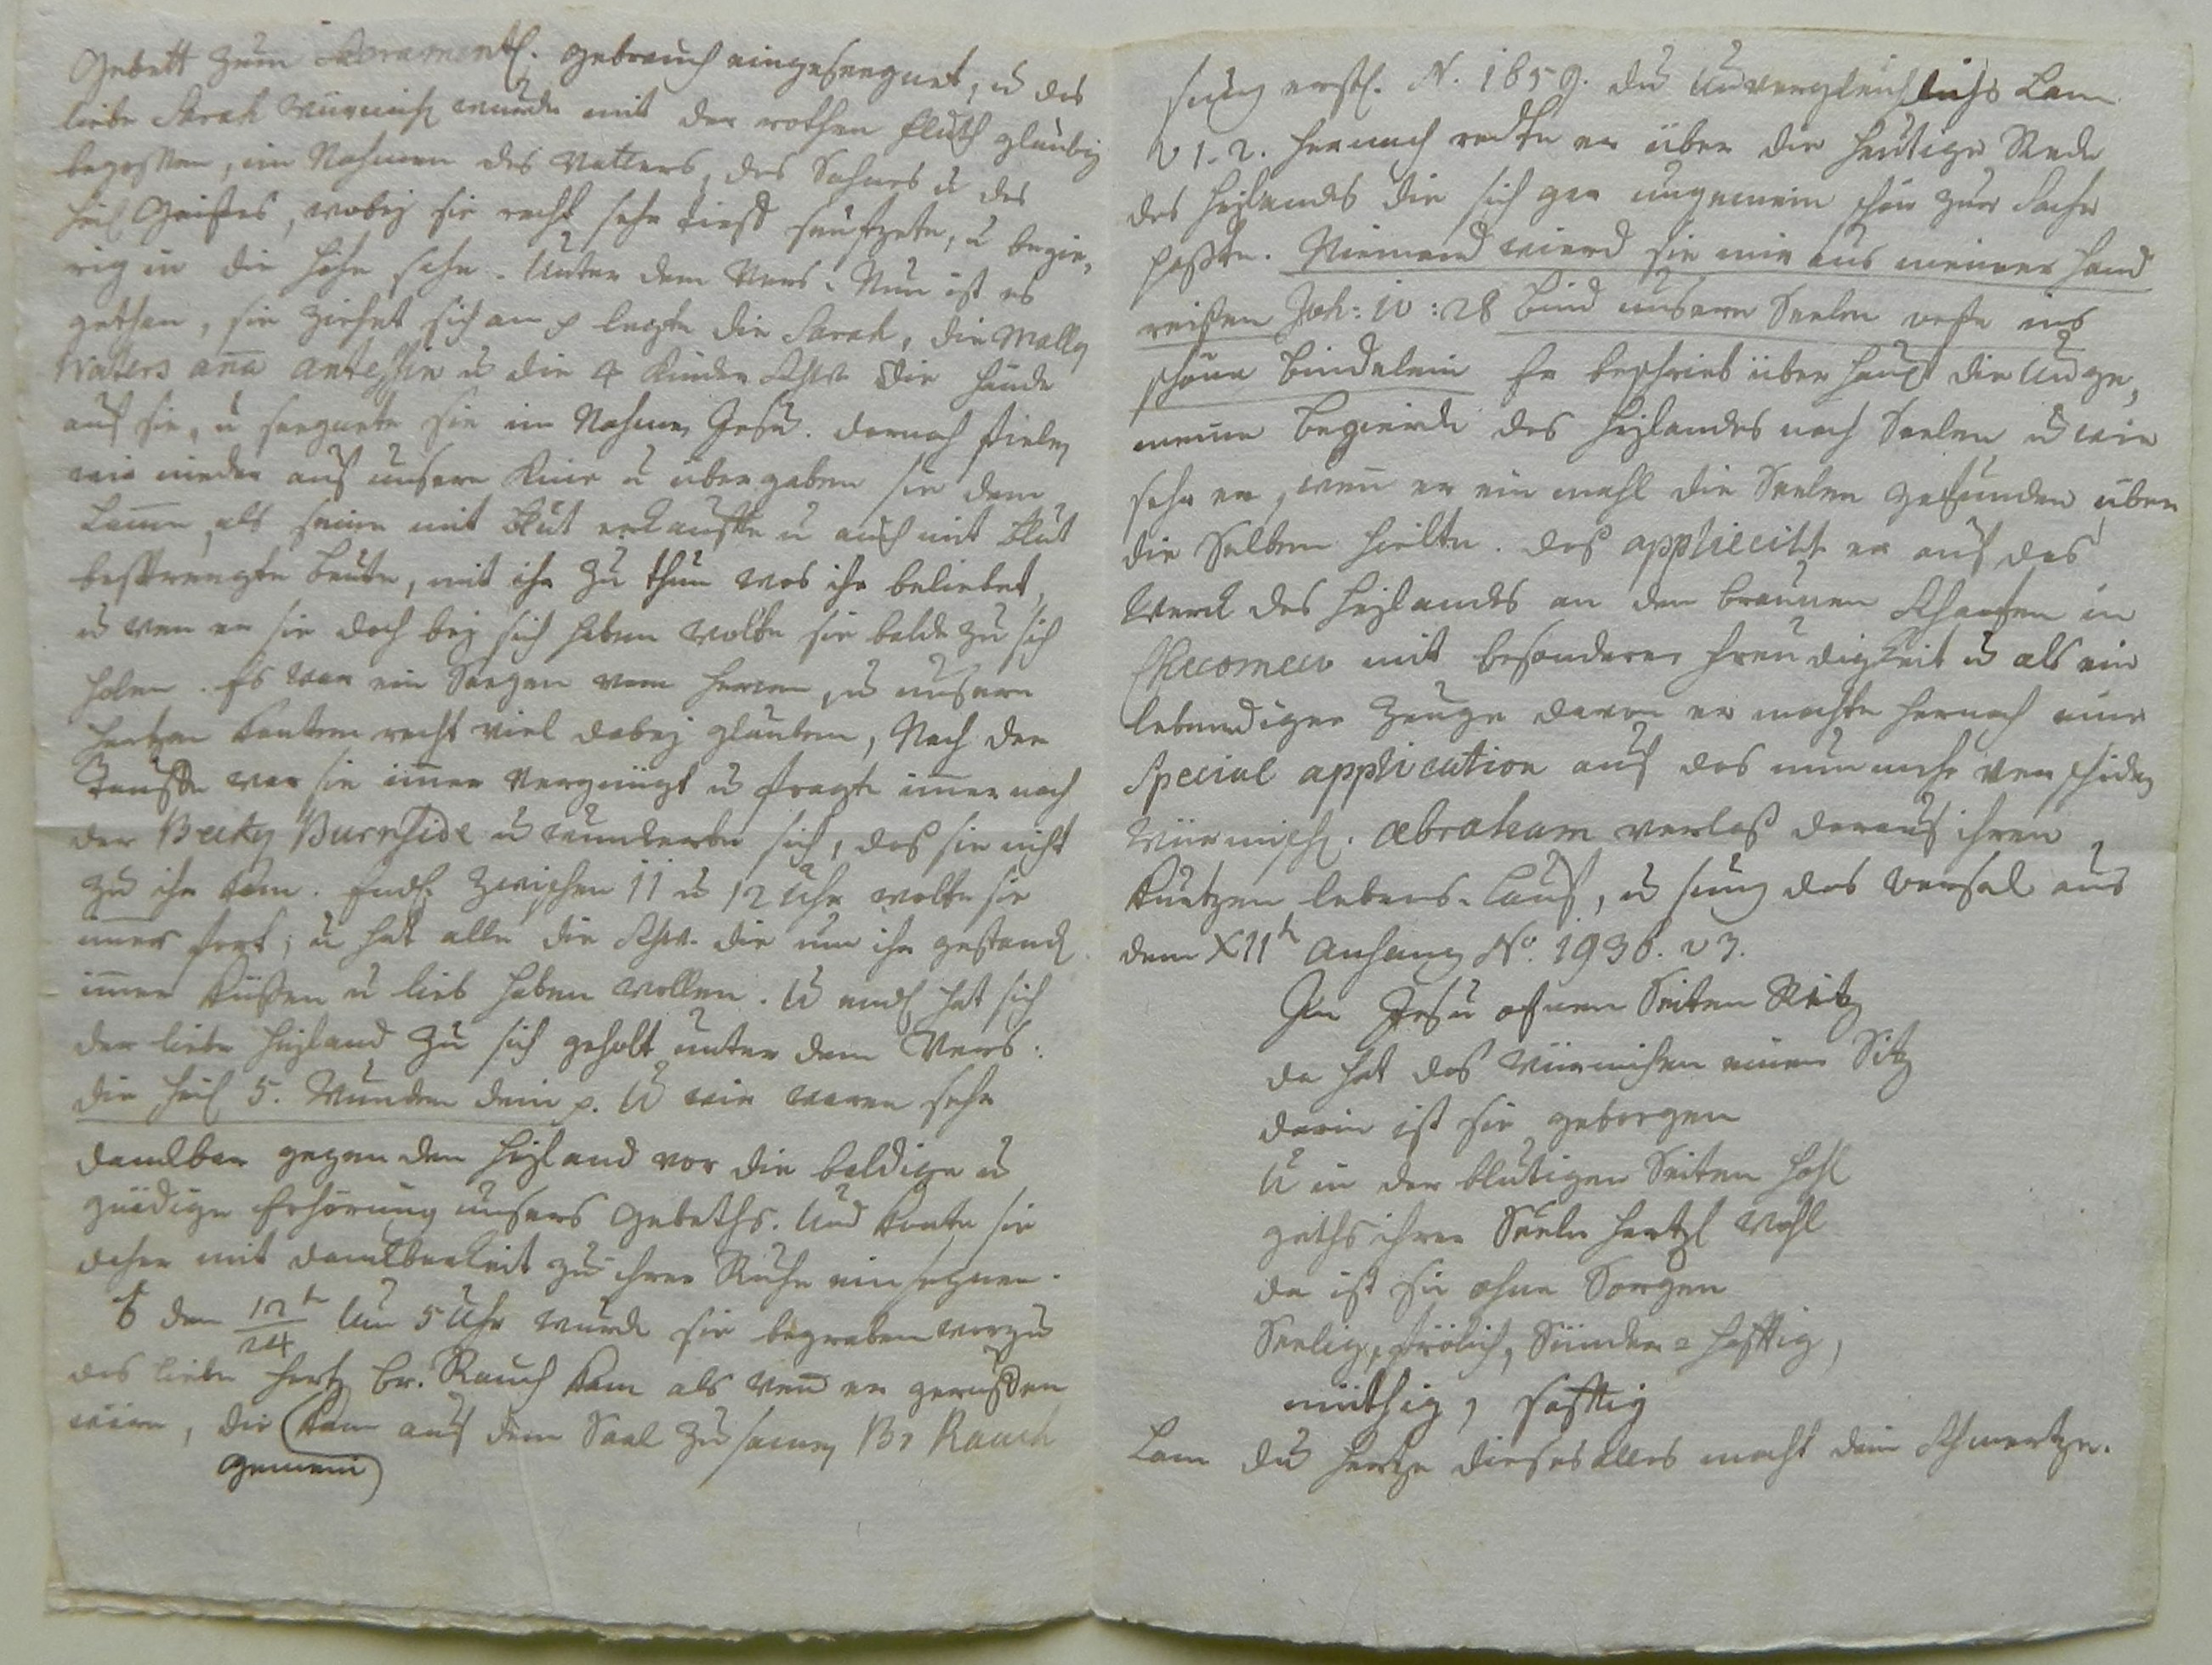 Gebett zum Sacramentl. gebrauch eingeseegnet, u das
liebe Sarah Würmch wurde mit der rothen Fluth gläubig
begoßen, im Nahmen des Vatters, des Sohnes u des
heil Geistes, wobey sie recht sehr tieff seufzete, u begie,
rig in die höhe sahe. Unter dem Vers: Nun ist es
gethan, sie ziehet sich an p legte die Sarah, die Molly
Waters ana und die 4 Kinder Schw die hände
auf sie, u seegnete sie im Nahmen Jesu. darnach fielen
wir nieder auf unsere Knie u übergaben sie dem
Lamm, als seine mit Blut erkauffte u auch mit Blut
besprengte beute, mit ihr zu thun was ihm beliebet,
u wen er sie doch bey sich haben wolte sie balde zu sich
holen. Es war ein Seegen vom Herren, u unsere
hertzen konten recht viel dabey glauben, Nach der
Tauffe war sie imer vergnügt u fragte imer nach
der Becky Burnside u wunderte sich, daß sie nicht
zu ihr kam. Endl. zwischen 11 u 12 Uhr wolte sie
imer fort; u hat alle die Schw. die um ihr gestand
imer küßen u lieb haben wollen. U endl hat sich
der liebe Heyland zu sich geholt unter dem Vers:
die heil 5. Wunden dein p. U wir waren sehr
danckbar gegen den Heyland vor die baldige u
gnädige Erhörung unsers Gebeths. Und konte sie
daher mit danckbarkeit zu ihrer Ruhe einsegnen.
den 12/24 Um 5 Uhr wurde sie begraben worzu
das liebe hertz br. Rauch kam als wen er geruffen
wäre, die kam auf dem Saal zusamen Br Rauch
Gemein
sung erstl. N. 1859. du Unvergleichliches Lam
v 1. 2. hernach redte er über die heutige Rede
des Heylands die sich gar ungemein schön zur Sache
paßte. Niemand wierd sie mir aus meiner Hand
reißen Joh: 10:28 bind unsere Seelen veste ins
schöne bindelein Er beschrieb überhaupt die Unge,
meine begierde des Heylandes nach Seelen, u wie
sehr er, wen er ein mahl die Seelen gefunden über
die Selben hielte. das applicirt er auf das
Werck des Heylandes an den braunen Schaafen in
Checomeco mit besonderer Freudigkeit u als ein
lebendiger Zeuge davon er machte hernach eine
Special application auf das nunmehr verschiden
Würmch. Abraham verlaß darauf ihren
kurtzen lebens-lauf, u sung das versel aus
dem XIIt Anhang No. 1936. v 3.
In Jesu ofnen Seiten Ritz
da hat das Würmchen einen Sitz
darin ist sie geborgen
U in der blutigen Seiten Höhl
gehts ihrer Seele hertzl wohl
da ist sie ohne Sorgen
Seelig, frölich, Sünder-hafftig,
müthig, safftig
Lam du hertze dieses alles macht dein Schmertze.